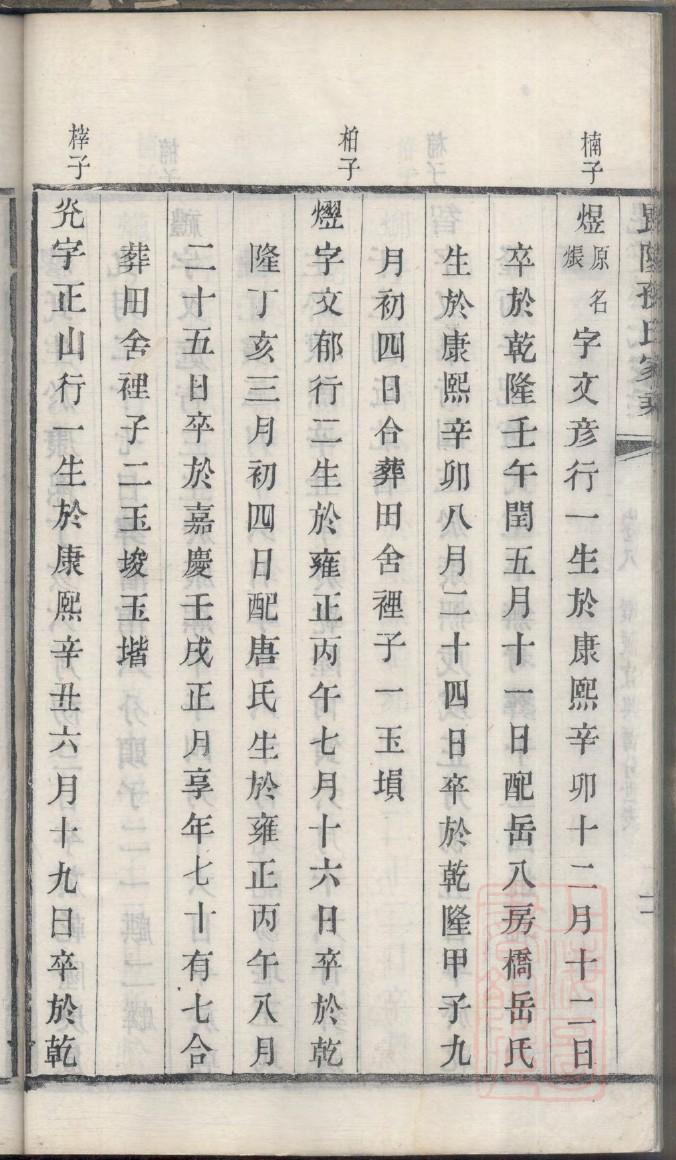 毘陵孫氏家乘
楠子
煜原名煨字文彥行一生於康熙辛卯十二月十二日
卒於乾隆壬午閏五月十一日配岳八房橋岳氏
生於康熙辛卯八月二十四日卒於乾隆甲子九
月初四日合葬田舍裡子一玉塤
柏子
燿字文郁行二生於雍正丙午七月十六日卒於乾
隆丁亥三月初四日配唐氏生於雍正丙午八月
二十五日卒於嘉慶壬戌正月享年七十有七合
葬田舍裡子二玉埈玉堦
梓子
炛字正山行一生於康熙辛丑六月十九日卒於乾